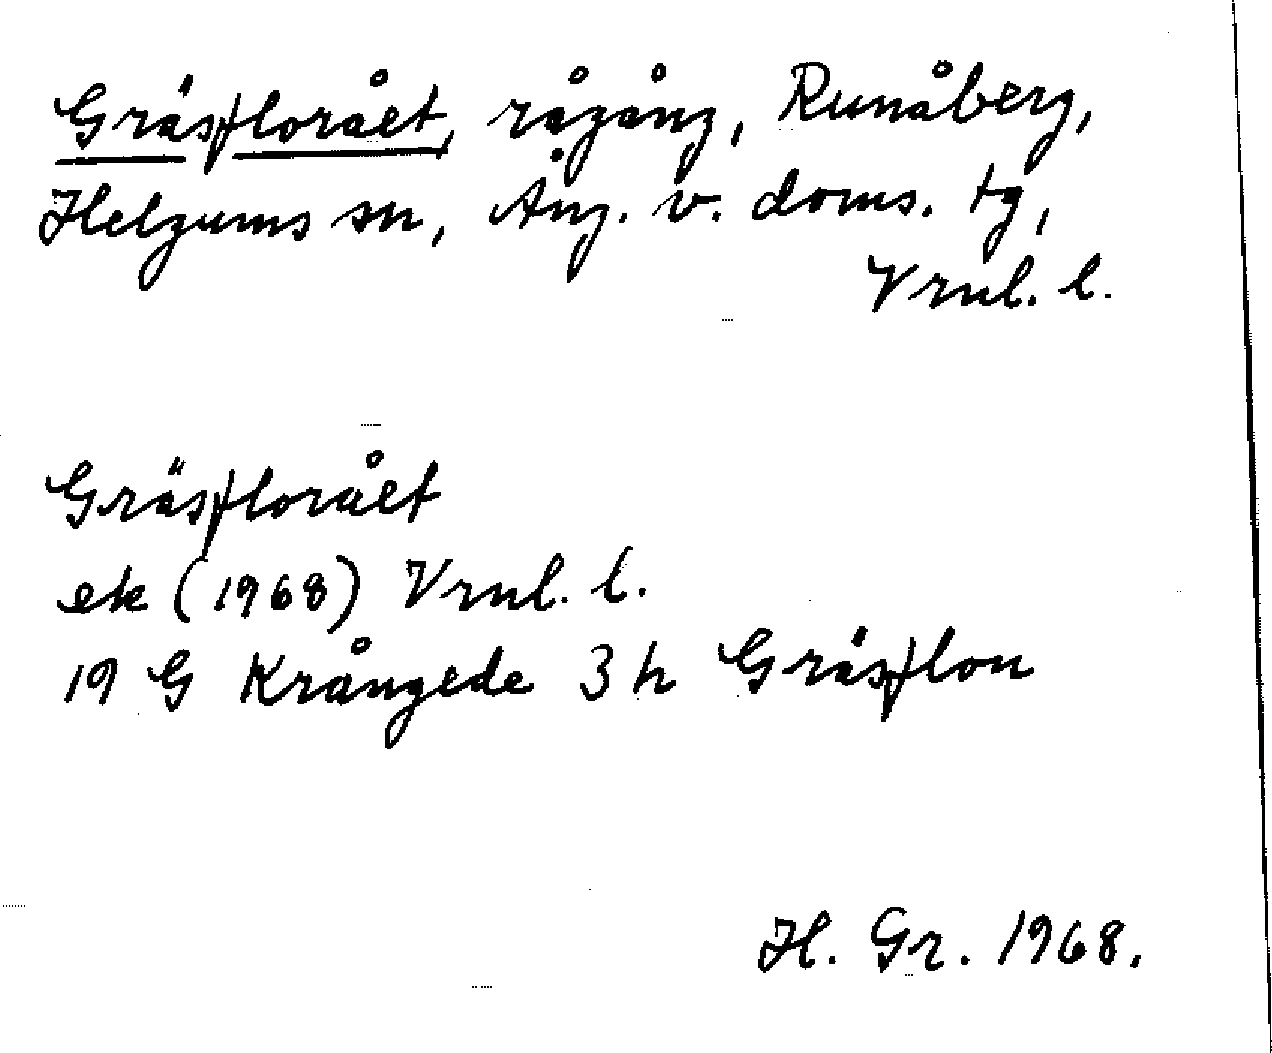 Gräsflorået, rågång, Runåberg,
Helgums sn, Ång. v. doms. tg,
Vrnl. l.
Gräsflorået
ek (1968) Vrnl. l.
19 G Krångede 3 h Gräsflon
H. Gr. 1968.